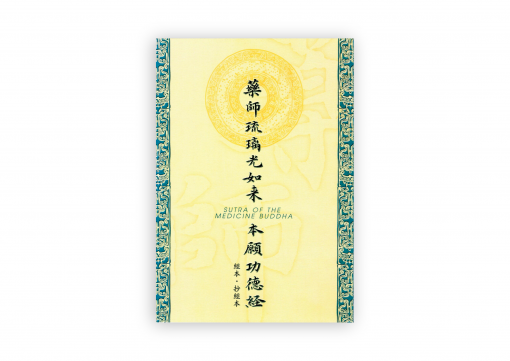 藥師琉璃光如来本願功德経
SUTRA OF THE
MEDICINE BUDDHA
経本・抄経本